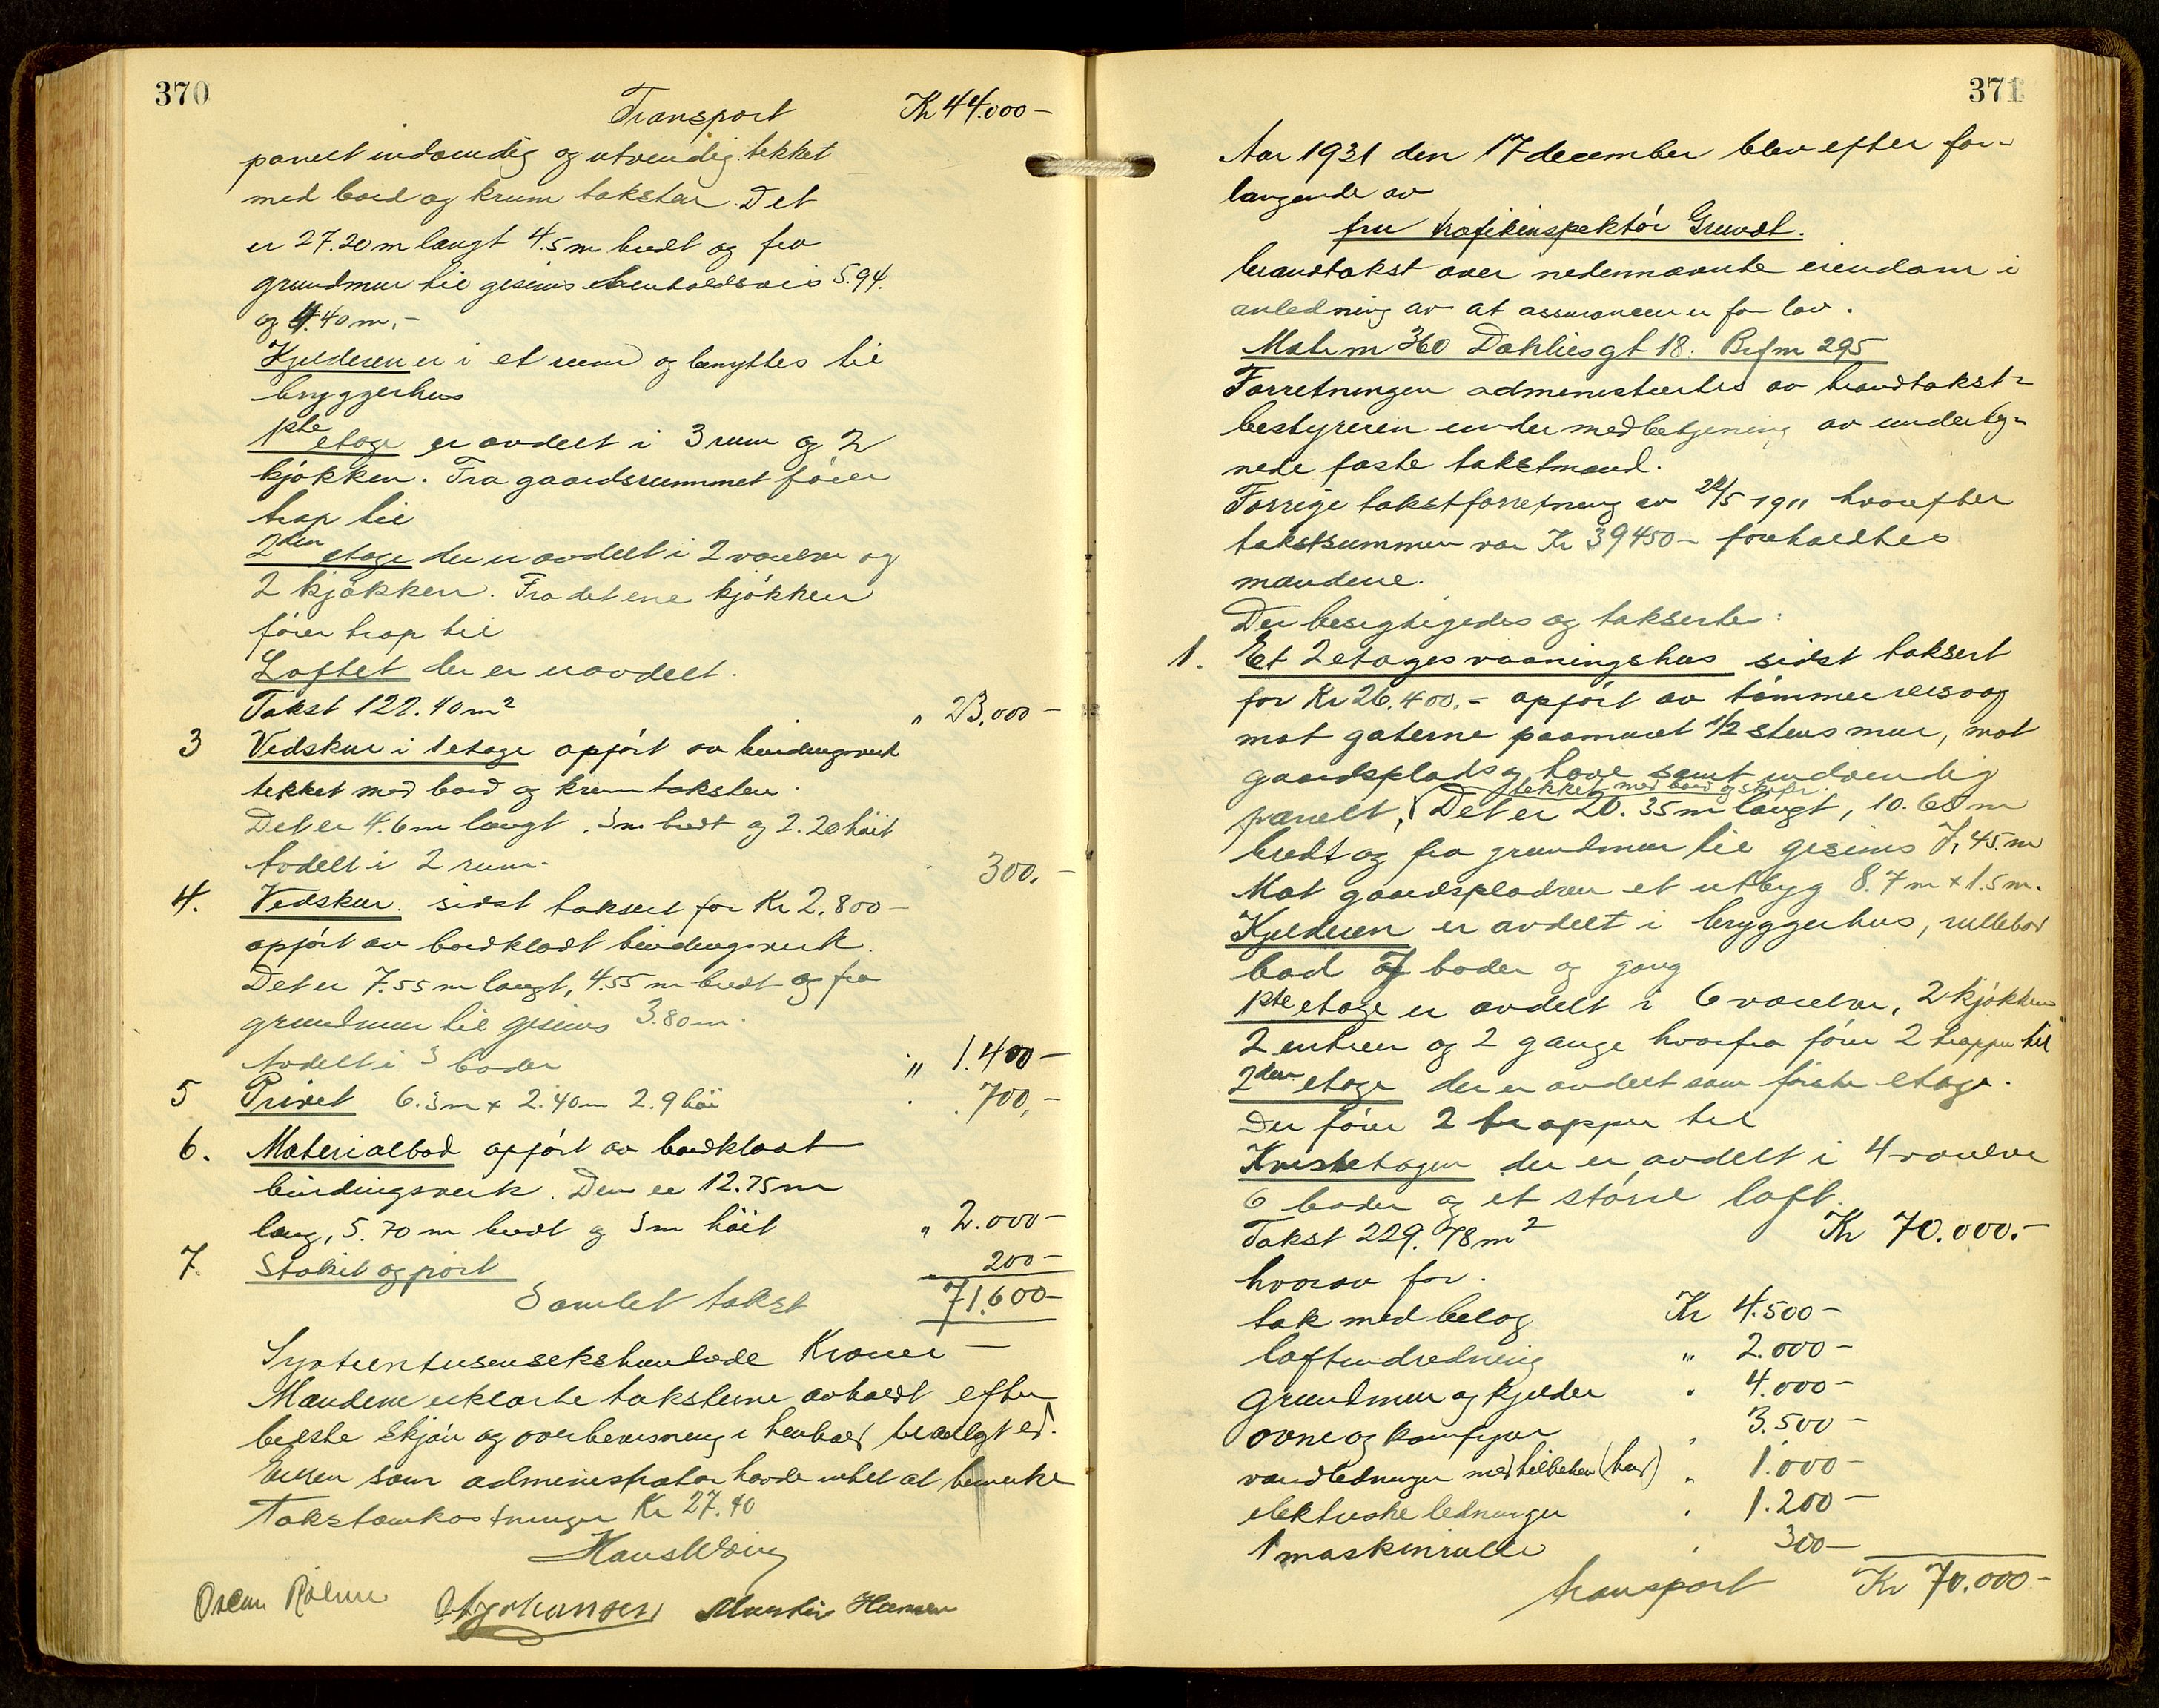 370
Transport Kr 44.000 –
panelt indvendig og utvendig tekket
med bord og krum taksten. Det
er 27.20 m langt 4.5 m bredt og fra
grundmur til gesims henholdsvis 5.94.
og 4.40 m. –
Kjelderen er i et rum og benyttes til
bryggerhus
1ste etage er avdelt i 3 rum og 2
kjøkken. Fra gaardsrummet fører
trap til
2den etage der er avdelt i 2 værelser og
2 kjøkken. Fra det ene kjøkken
fører trap til
Loftet der er uavdelt.
Takst 122.40 m2 " 23.000 –
3 Vedskur i 1 etage opført av bindingsverk
tekket med bord og krum taksten.
Det er 4.6 m langt, 3 m bredt og 2.20 høit
Avdelt i 2 rum. 300. –
4. Vedskur. sidst taksert for Kr 2.800 –
opført av bordklædt bindingsverk.
Det er 7.55 m langt, 4.55 m bredt og fra
grundmur til gesims 3.80 m.
Avdelt i 3 boder " 1.400 –
5 Privet 6.3 m x 2.40 m 2.9 høi 700, –
6. Materialbod opført av bordklædt
bindingsverk. Den er 12.75 m
lang, 5.70 m bredt og 3 m høit " 2.000 –
7 Stakit og port 200 –
Samlet takst 71.600 –
Syttientusensekshundrede Kroner –
Mændene erklærte taksterne avholdt efter
bedste skjøn og overbevisning i henhold til avlagt ed.
Enhver som administrator havde intet at bemerke
Takstomkostninger Kr 27.40
Hans
Oscar Johansen Martin Hansen
371
Aar 1931 den 17 december blev efter for-
langende av
fru trafikinspektør Grundt.
brandtakst over nedennævnte eiendom i
anledning av at assurancen er for lav.
Matr nr 360 Dahliesgt 18. Br.fnr 295
Forretningen administrertes av brandtakst-
bestyreren under medbetjening av underteg-
nede faste takstmænd.
Forrige takstforretning av 22/5 1911 hvorefter
takstsummen var Kr 39450 – foreholdtes
mændene.
Der besigtigedes og takserte:
1. Et 2 etages vaaningshus sidst taksert
for Kr 26.400. – opført av tømmer reisv og
mot gaterne paamuret 1/2 stens mur, mot
gaardsplads og have samt indvendig
tekket med bord og skifer.
panelt, Det er 20.35 m langt, 10.60 m
bredt og fra grundmur til gesims 7,45. m
Mot gaardspladsen et utbyg 8.7 m x 1.5 m.
Kjelderen er avdelt i bryggerhus, rullebod
bad 7 boder og gang
1ste etage er avdelt i 6 værelser, 2 kjøkken
2 entreer og 2 gange hvorfra fører 2 trapper til
2den etage der er avdelt som første etage.
Der fører 2 trapper til
Kvistetagen der er avdelt i 4 værelser
6 boder og et større loft.
Takst 229.78 m2 Kr 70.000. –
hvorav for.
tak med belæg Kr 4.500 –
loftindredning " 2.000 –
grundmur og kjelder " 4.000 –
ovne og komfyrer " 3.500 –
vandledninger med tilbehør (bad) " 1.000 –
elektriske ledninger " 1.200 –
1 maskinrulle " 300 –
transport Kr 70.000 –